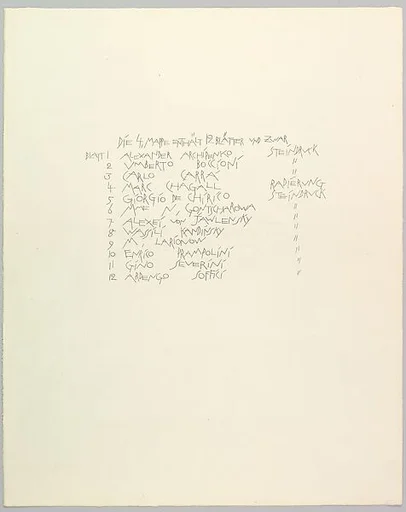 DIE 4. MAPPE ENTHÄLT 12 BLÄTTER UND ZWAR
BLATT 1 ALEXANDER ARCHIPENKO STEINDRUCK
2 UMBERTO BOCCIONI "
3 CARLO CARRÀ "
4 MARC CHAGALL RADIERUNG
5 GIORGIO DE CHIRICO STEINDRUCK
6 N. GONTSCHAROWA "
7 ALEXEI VON JAWLENSKY "
8 WASSILI KANDINSKY "
9 M. LARIONOW "
10 ENRICO PRAMPOLINI "
11 GINO SEVERINI "
12 ARDENGO SOFFICI "